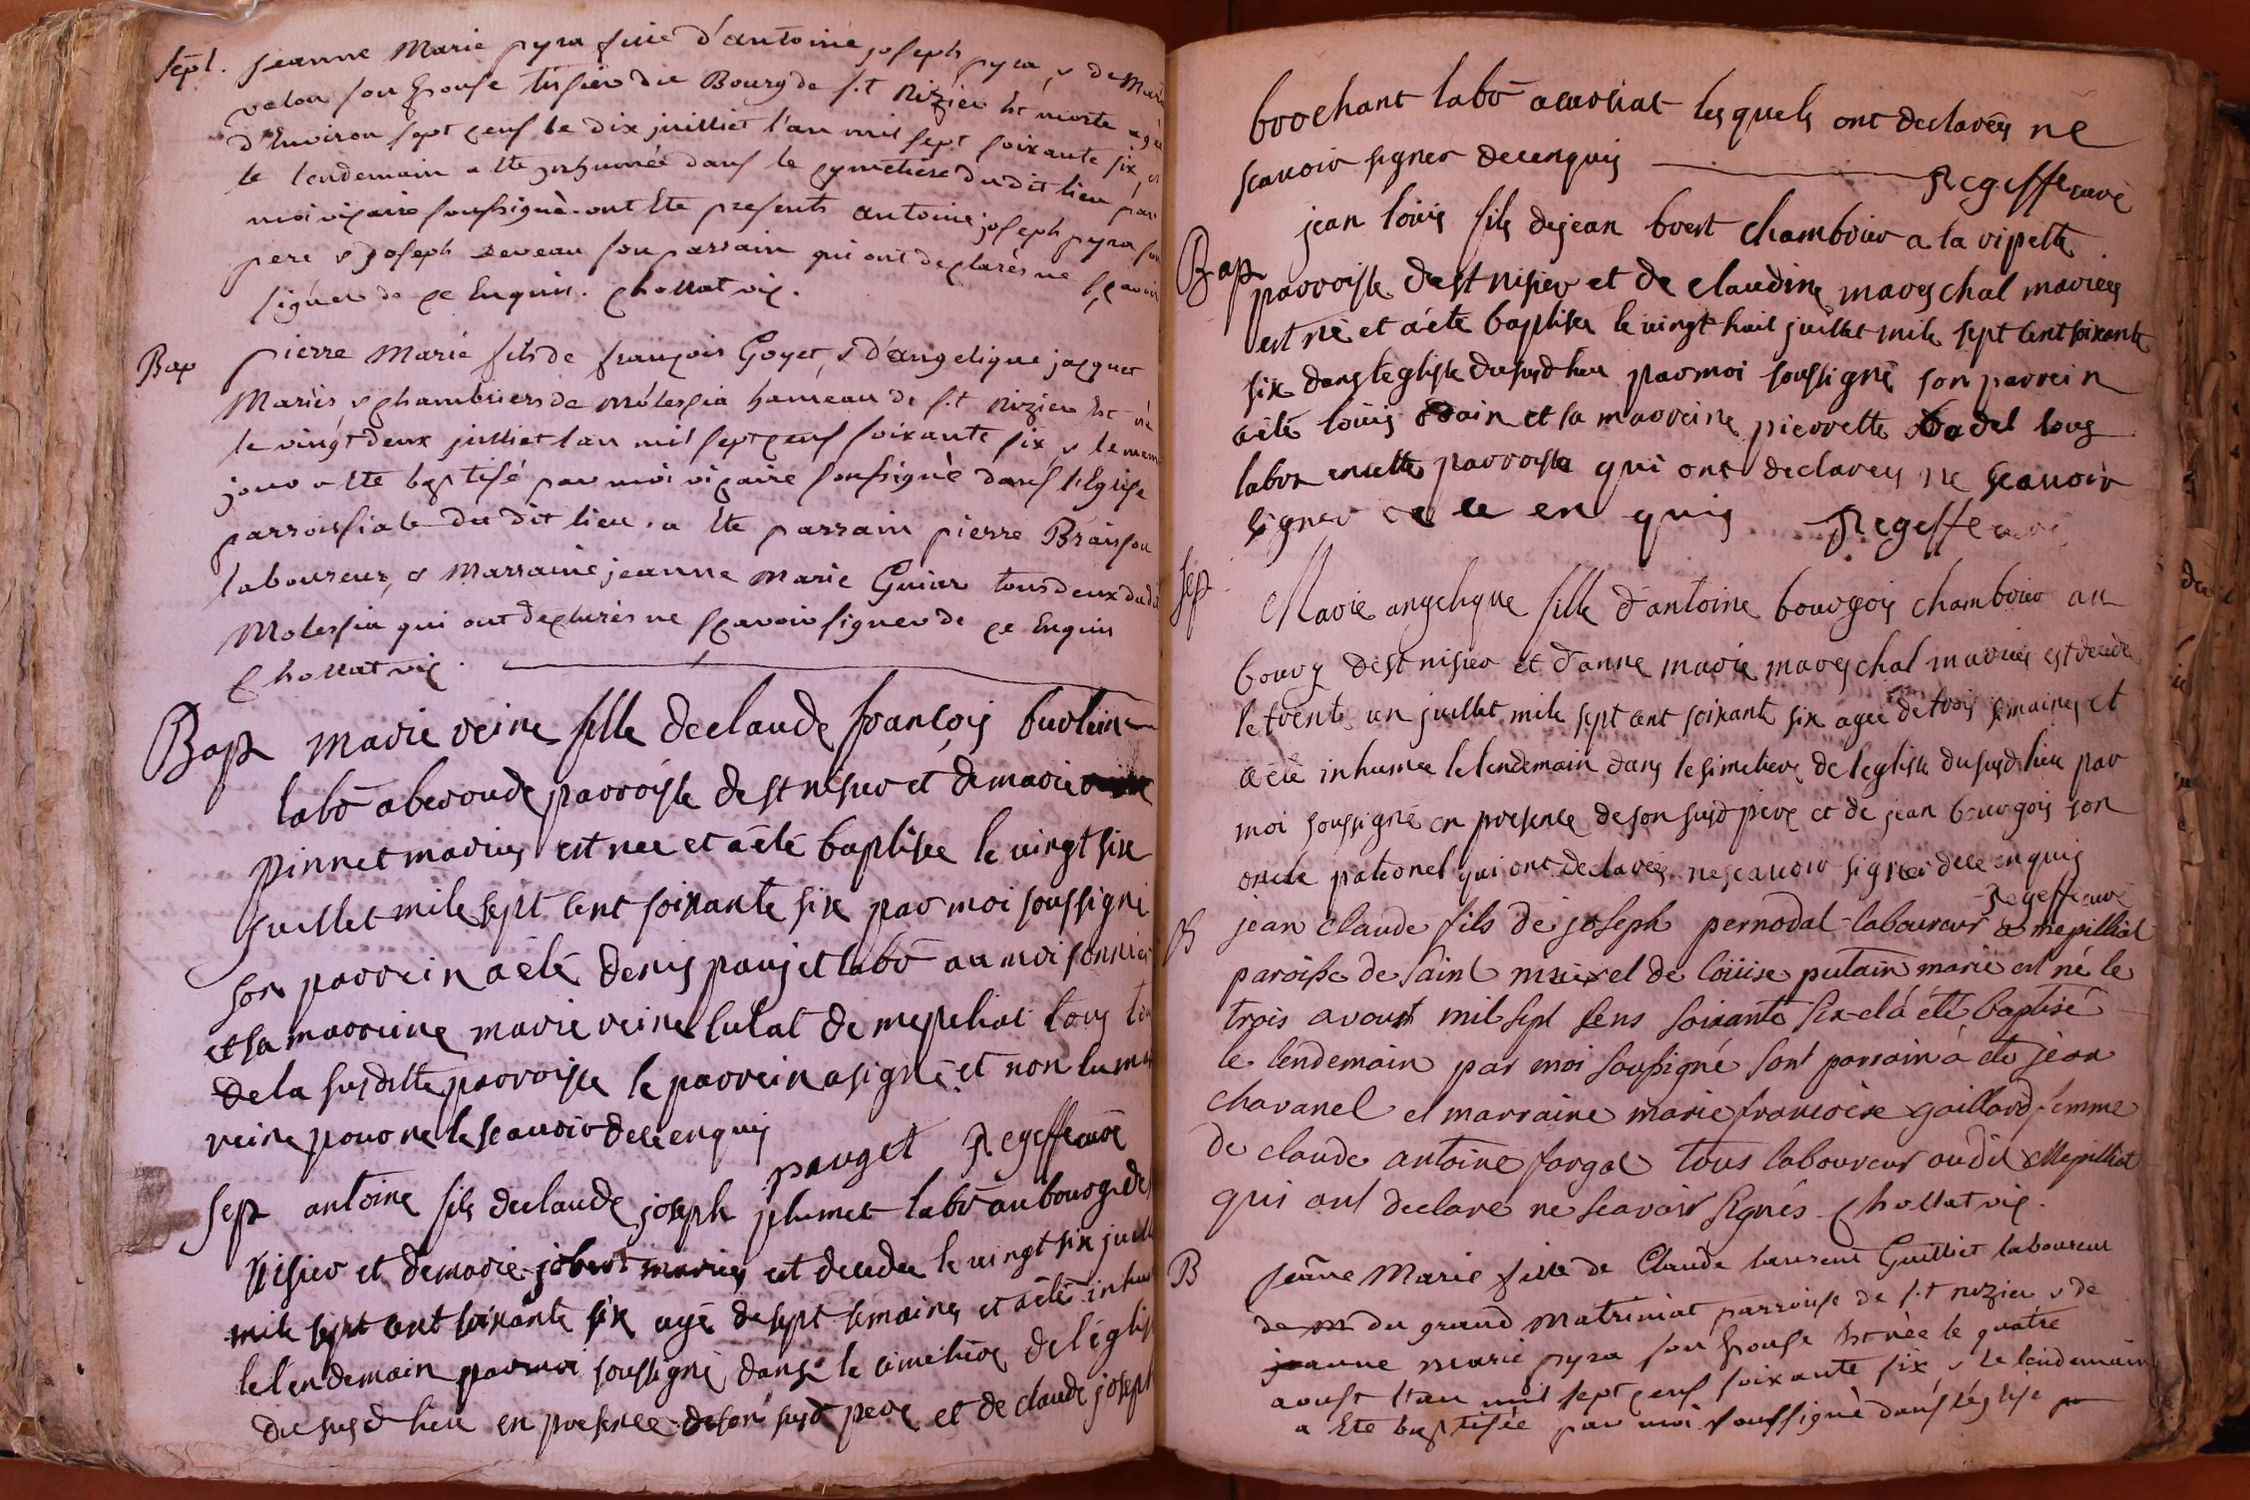 Sept. jeanne Marie pyra fille d'antoine joseph pyra, & de Marie
velon son Epouse tissier du Bourg de s.t Nizier Est morte agée
d'Environ sept cens le dix juilliet l'an mil sept soixante six, et
le lendemain a Ete inhumée dans le cymetiere du dit lieu par
moi vicaire soussigné. ont Ete presents antoine joseph pyra son
pere & joseph Deveau son parrain qui ont declarés ne sçavoir
signer de ce Enquis. Chollat vic.
Bap pierre Marie fils de françois Goyet, & d'angelique jacquet
Mariés, & chambriers de molessia hameau de s.t Nizier Est né
le vingt deux julliet l'an mil sept cens soixante six & le meme
jour a Ete baptisé par moi vicaire soussigné dans l'Eglise
parroissiale du dit lieu. a Ete parrain pierre Braissou
laboureur, & Marraine jeanne Marie Guier tous deux dudit
Molessia qui ont declarés ne sçavoir signer de ce Enquis
Chollat vic.
Bap marie reine fille de claude françois burtein
labõ a beroude parroisse de st nisier et de marie
pinnet mariés est née et a été baptisée le vingt six
juillet mile sept cent soixante six par moi soussigné
son parrein a été denis pauget labõ au moi sonnier
et sa marreine marie reine lulat de mepeliat tous
de la susditte parroisse le parrein a signé et non la mar
reine pour ne le scauoir de ce enquis
pauget Regeffe curé
Sep antoine fils de claude joseph plumet labõ au bourg de st
Nisier et de marie jobert mariés est decedee le vingt six juillet
mile sept cent soixante six agé de sept semaines et a été inhumé
le lendemain par moi soussigné dans le cimetiere de l'eglise
du susd lieu en presence de son susd pere et de claude joseph
brochant labõ a curtiat les quels ont declarés ne
scauoir signer de ce enquis Regeffe curé
Bap jean loüis fils de jean bret chambrier a la vipette
parroisse de st nisier et de claudine mareschal mariés
est né et a été baptisé le vingt huit juillet mile sept cent soixante
six dans l'eglise du susd lieu par moi soussigné son parrein
a été loüis odain et sa marreine pierrette badel tous
labõs en cette parroisse qui ont declarés ne scauoir
signer de ce en quis Regeffe curé
Sep Marie angelique fille d'antoine bourgois chambrier au
bourg de st nisier et d'anne marie mareschal mariés est decede
le trente un juillet mile sept cent soixante six agée de trois semaines et
a été inhumée le lendemain dans le simetiere de l'eglise du susd lieu par
moi soussigné en presence de son susd pere et de jean bourgois son
oncle paternel qui ont declarés ne scauoir signer de ce enquis
Regeffe curé
B jean claude fils de joseph pernodat laboureur a mepilliat
paroisse de saint nisier et de loüise putain marié est né le
trois avoust mil sept sens soixante six et a été baptisé
le lendemain par moi soussigné sont parrain a été jean
chavanel et marraine marie françoise gaillard femme
de claude antoine fargat tous laboureur audit Mepilliat
qui ont declare ne scavoir signés Chollat vic.
B jeane Marie fille de Claude laurent Guilliet laboureur
de m du grand matriniat parroisse de s.t nizier & de
jeanne marie pyra son Epouse Est née le quatre
aoust l'an mil sept cens soixante six, & le lendemain
a Ete baptisée par moi soussigné dans l'église pa